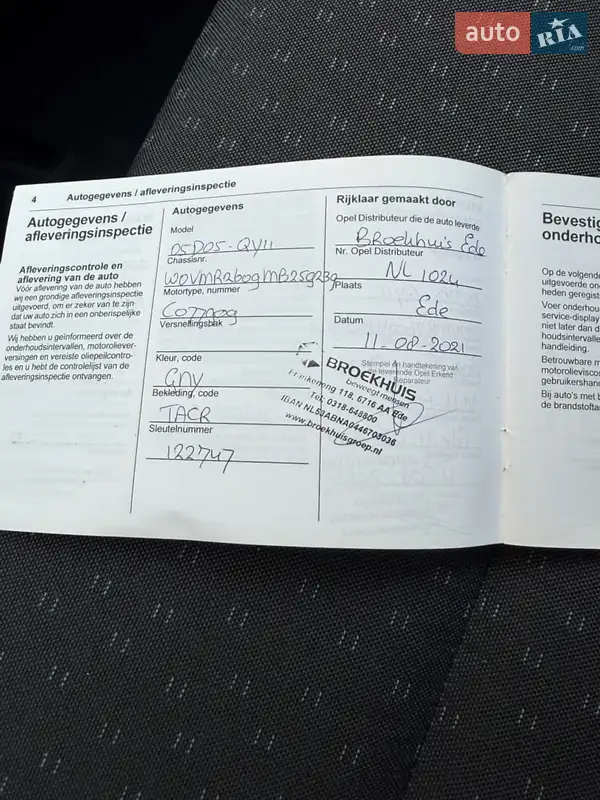 auto RIA .com
4 Autogegevens / afleveringsinspectie
Autogegevens /
afleveringsinspectie
Afleveringscontrole en
aflevering van de auto
Vóór aflevering van de auto hebben
wij een grondige afleveringsinspectie
uitgevoerd, om er zeker van te zijn
dat uw auto zich in een onberispelijke
staat bevindt.
Wij hebben u geïnformeerd over de
onderhoudsintervallen, motoroliever-
versingen en vereiste oliepeilcontro-
les en u hebt de controlelijst van de
afleveringsinspectie ontvangen.
Autogegevens
Model
Chassisnr.
Motortype, nummer
Versnellingsbak
Kleur, code
GNV
Bekleding, code
TACR
Sleutelnummer
122747
Rijklaar gemaakt door
Opel Distributeur die de auto leverde
Broekhuis Ede
Nr. Opel Distributeur
NL 1024
Plaats
Ede
Datum
11-08-2021
Stempel en handtekening van
de leverende Opel Erkend
Reparateur
BROEKHUIS
beweegt mensen
118, 6716 AA Ede
Tel: 0318-648800
IBAN NL53ABNA0446703036
www.broekhuisgroep.nl
Bevestig
onderho
Op de volgende
uitgevoerde on
heden geregist
Voer onderhou
service-display
niet later dan d
houdsintervalle
handleiding.
Betrouwbare m
motorolievisco
gebruikershand
Bij auto's met b
de brandstoftan